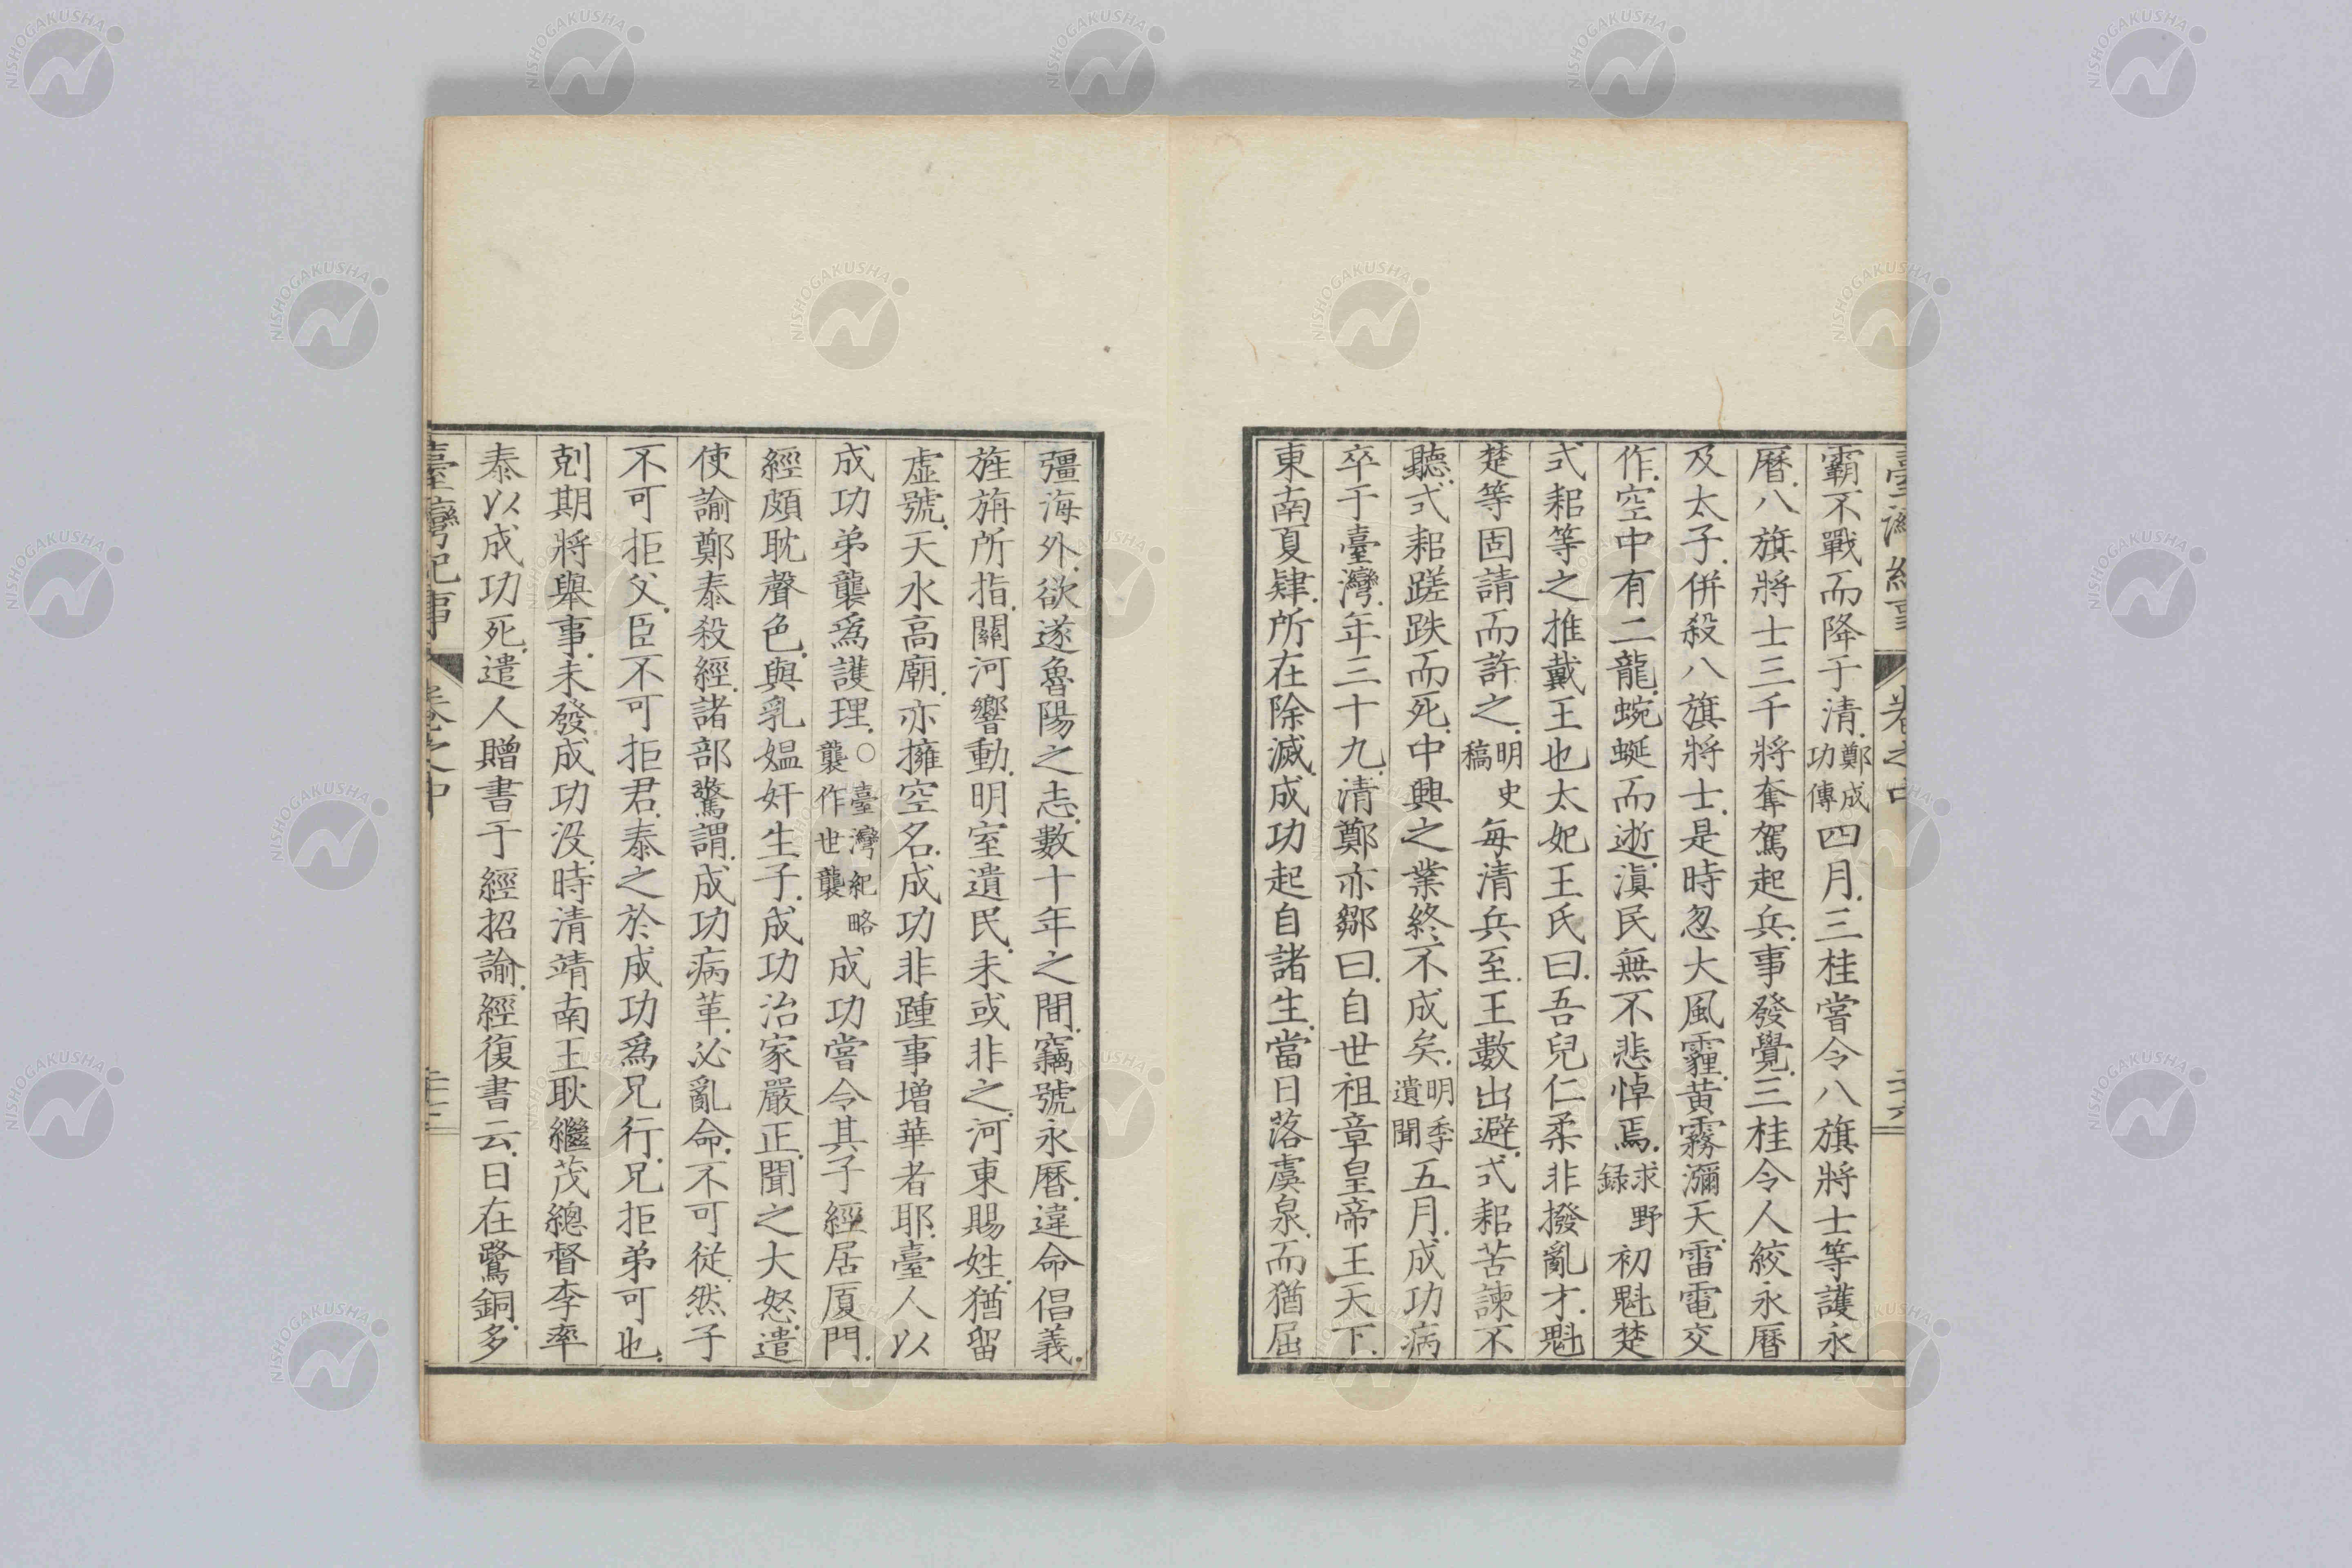 霸不戰而降于清鄭成功傳四月三桂嘗令八旗將士等護永
曆八旗將士三千將奪駕起兵事發覺三桂令人絞永曆
及太子併殺八旗將士是時忽大風霾黃霧瀰天雷電交
作空中有二龍蜿蜒而逝滇民無不悲悼焉求野録初魁楚
式耜等之推戴王也太妃王氏曰吾兒仁柔非撥亂才魁
楚等固請而許之明史稿每清兵至王數出避式耜苦諫不
聽式耜蹉跌而死中興之業終不成矣明季遺聞五月成功病
卒于臺灣年三十九清鄭亦鄒曰自世祖章皇帝王天下
東南夏肄所在除滅成功起自諸生當日落虞泉而猶屈
彊海外欲遂魯陽之志數十年之間竊號永曆違命倡義
旌旃所指關河響動明室遺民未或非之河東賜姓猶留
虛號天水高廟亦擁空名成功非踵事增華者耶臺人以
成功弟襲爲護理○臺灣紀略襲作世襲成功嘗令其子經居厦門
經頗耽聲色與乳媼奸生子成功治家嚴正聞之大怒遣
使諭鄭泰殺經諸部驚謂成功病革必亂命不可從然子
不可拒父臣不可拒君泰之於成功爲兄行兄拒弟可也
剋期將舉事未發成功没時清靖南王耿繼茂總督李率
泰以成功死遣人贈書于經招諭經復書云日在鷺銅多
臺灣紀事 卷之中